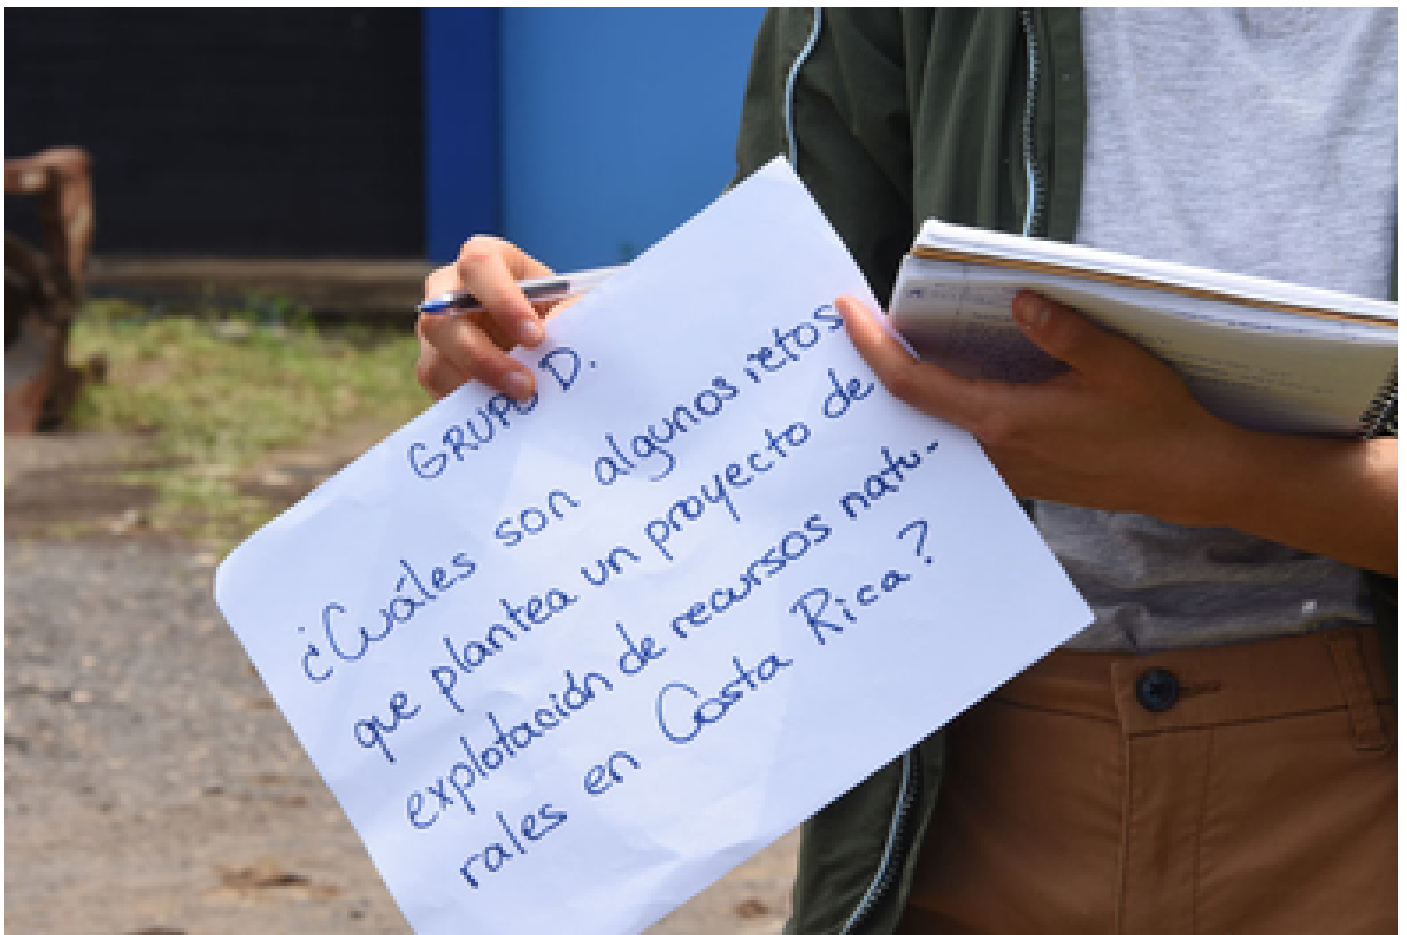 GRUPO D.
¿Cuáles son algunos retos
que plantea un proyecto de
explotación de recursos natu-
rales en Costa Rica?